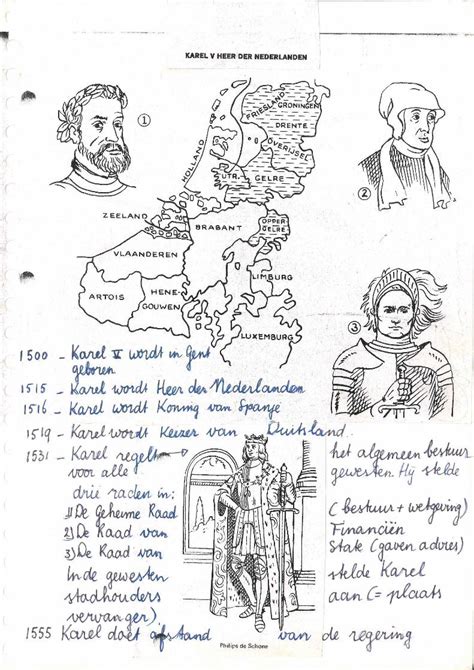 KAREL V HEER DER NEDERLANDEN
1
GRONINGEN
FRIESLAND
DRENTE
HOLLAND
OVERIJSEL
2
UTR.
GELRE
ZEELAND
BRABANT
OPPER
GELRE
VLAANDEREN
LIMBURG
ARTOIS
HENE-
GOUWEN
3
LUXEMBURG
1500 – Karel V wordt in Gent
geboren
1515 – Karel wordt Heer der Nederlanden
1516 – Karel wordt Koning van Spanje
1519 – Karel wordt Keizer van Duitsland
1531 – Karel regelt het algemeen bestuur
voor alle gewesten. Hij stelde
drie raden in:
1) De Geheime Raad (bestuur + wetgeving)
2) De Raad van Financiën
3) De Raad van State (gaven advies)
In de gewesten stelde Karel
stadhouders aan (= plaats
vervanger)
1555 Karel doet afstand van de regering
Philips de Schone